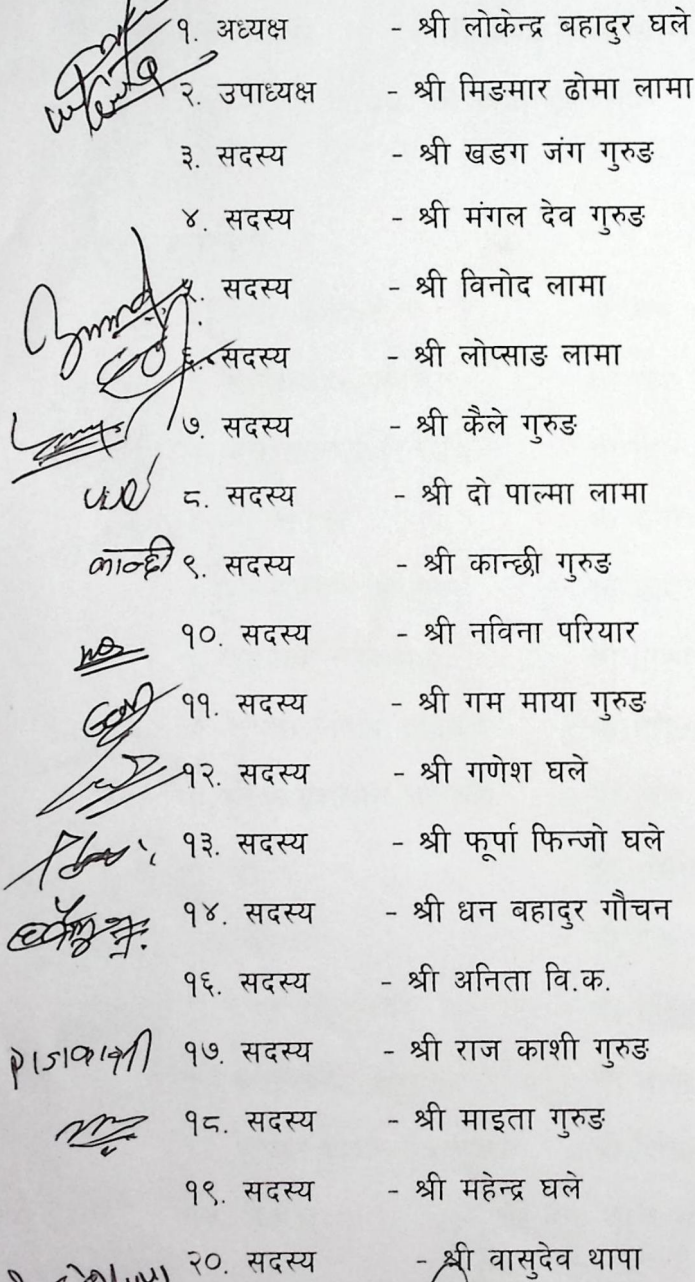 १. अध्यक्ष - श्री लोकेन्द्र वहादुर घले
२. उपाध्यक्ष - श्री मिङमार ढोमा लामा
३. सदस्य - श्री खडग जंग गुरुङ
४. सदस्य - श्री मंगल देव गुरुङ
५. सदस्य - श्री विनोद लामा
६. सदस्य - श्री लोप्साङ लामा
७. सदस्य - श्री कैले गुरुङ
८. सदस्य - श्री दो पाल्मा लामा
कान्छी ९. सदस्य - श्री कान्छी गुरुङ
१०. सदस्य - श्री नविना परियार
११. सदस्य - श्री गम माया गुरुङ
१२. सदस्य - श्री गणेश घले
१३. सदस्य - श्री फूर्पा फिन्जो घले
१४. सदस्य - श्री धन वहादुर गौचन
१६. सदस्य - श्री अनिता वि.क.
राजकाशी १७. सदस्य - श्री राज काशी गुरुङ
१८. सदस्य - श्री माइता गुरुङ
१९. सदस्य - श्री महेन्द्र घले
२०. सदस्य - श्री वासुदेव थापा